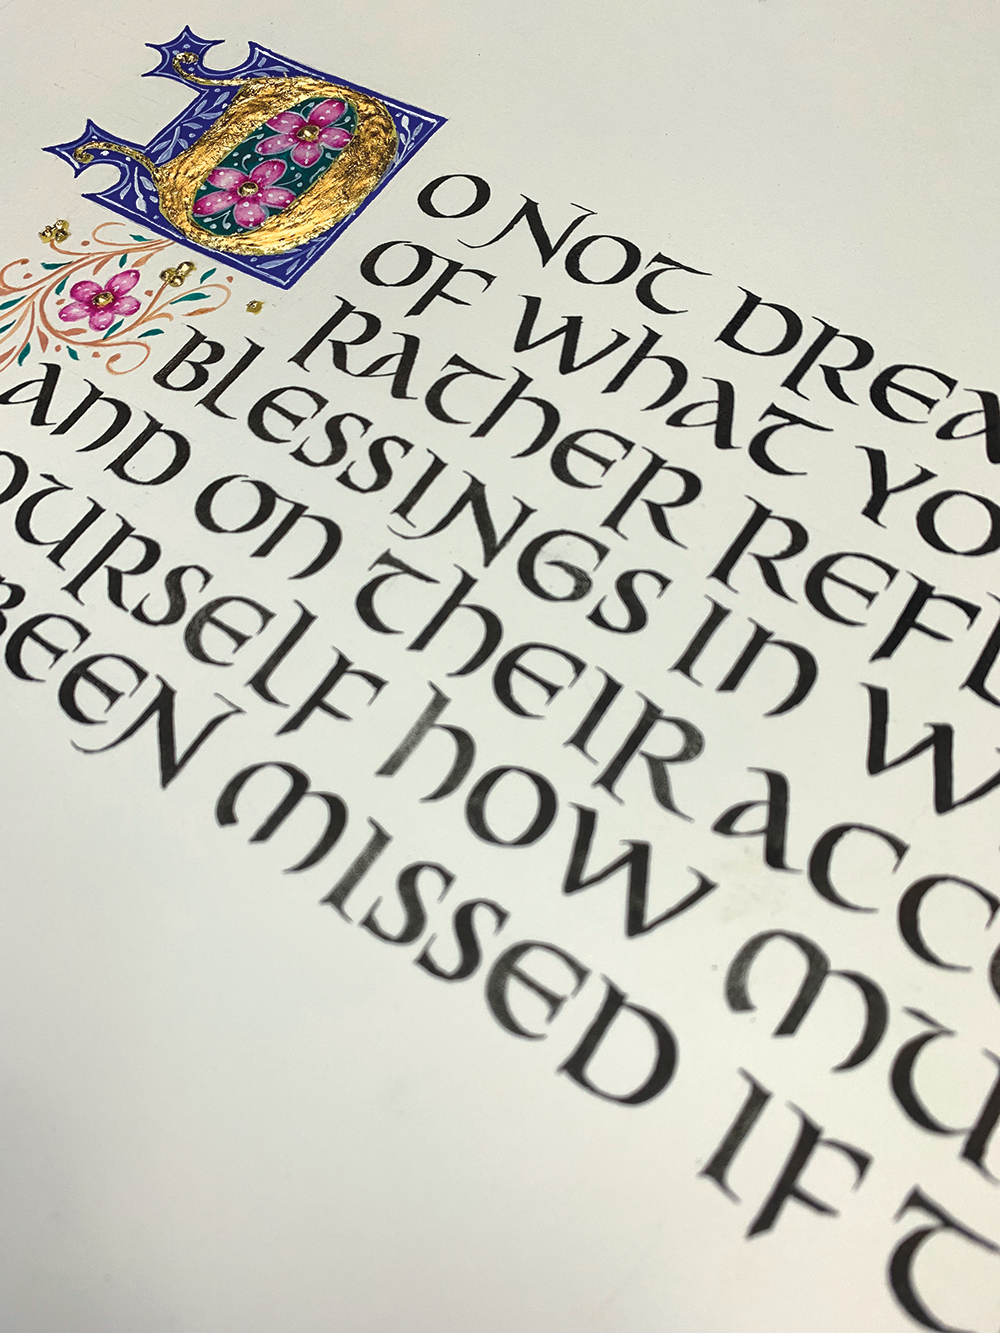 DO NOT DREA
OF WHAT YO
RATHER REFL
BLESSINGS IN W
AND ON THEIR ACCO
OURSELF HOW MU
BEEN MISSED IF T